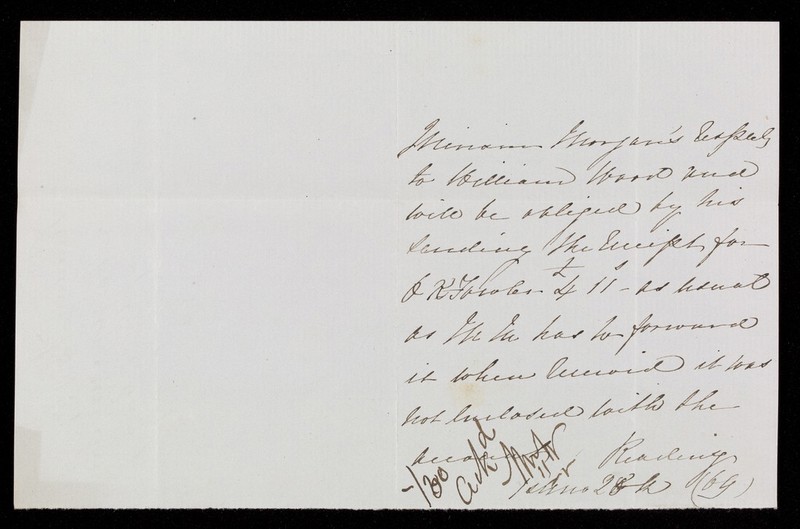 Miriam Morgan's respects
to William Wood and
will be obliged by his
sending the receipt for
J K Fowler £4 11s - as usual
as M M has to forward
it when received it was
not enclosed with the
account
Reading
28th (69)
ackd
-/30